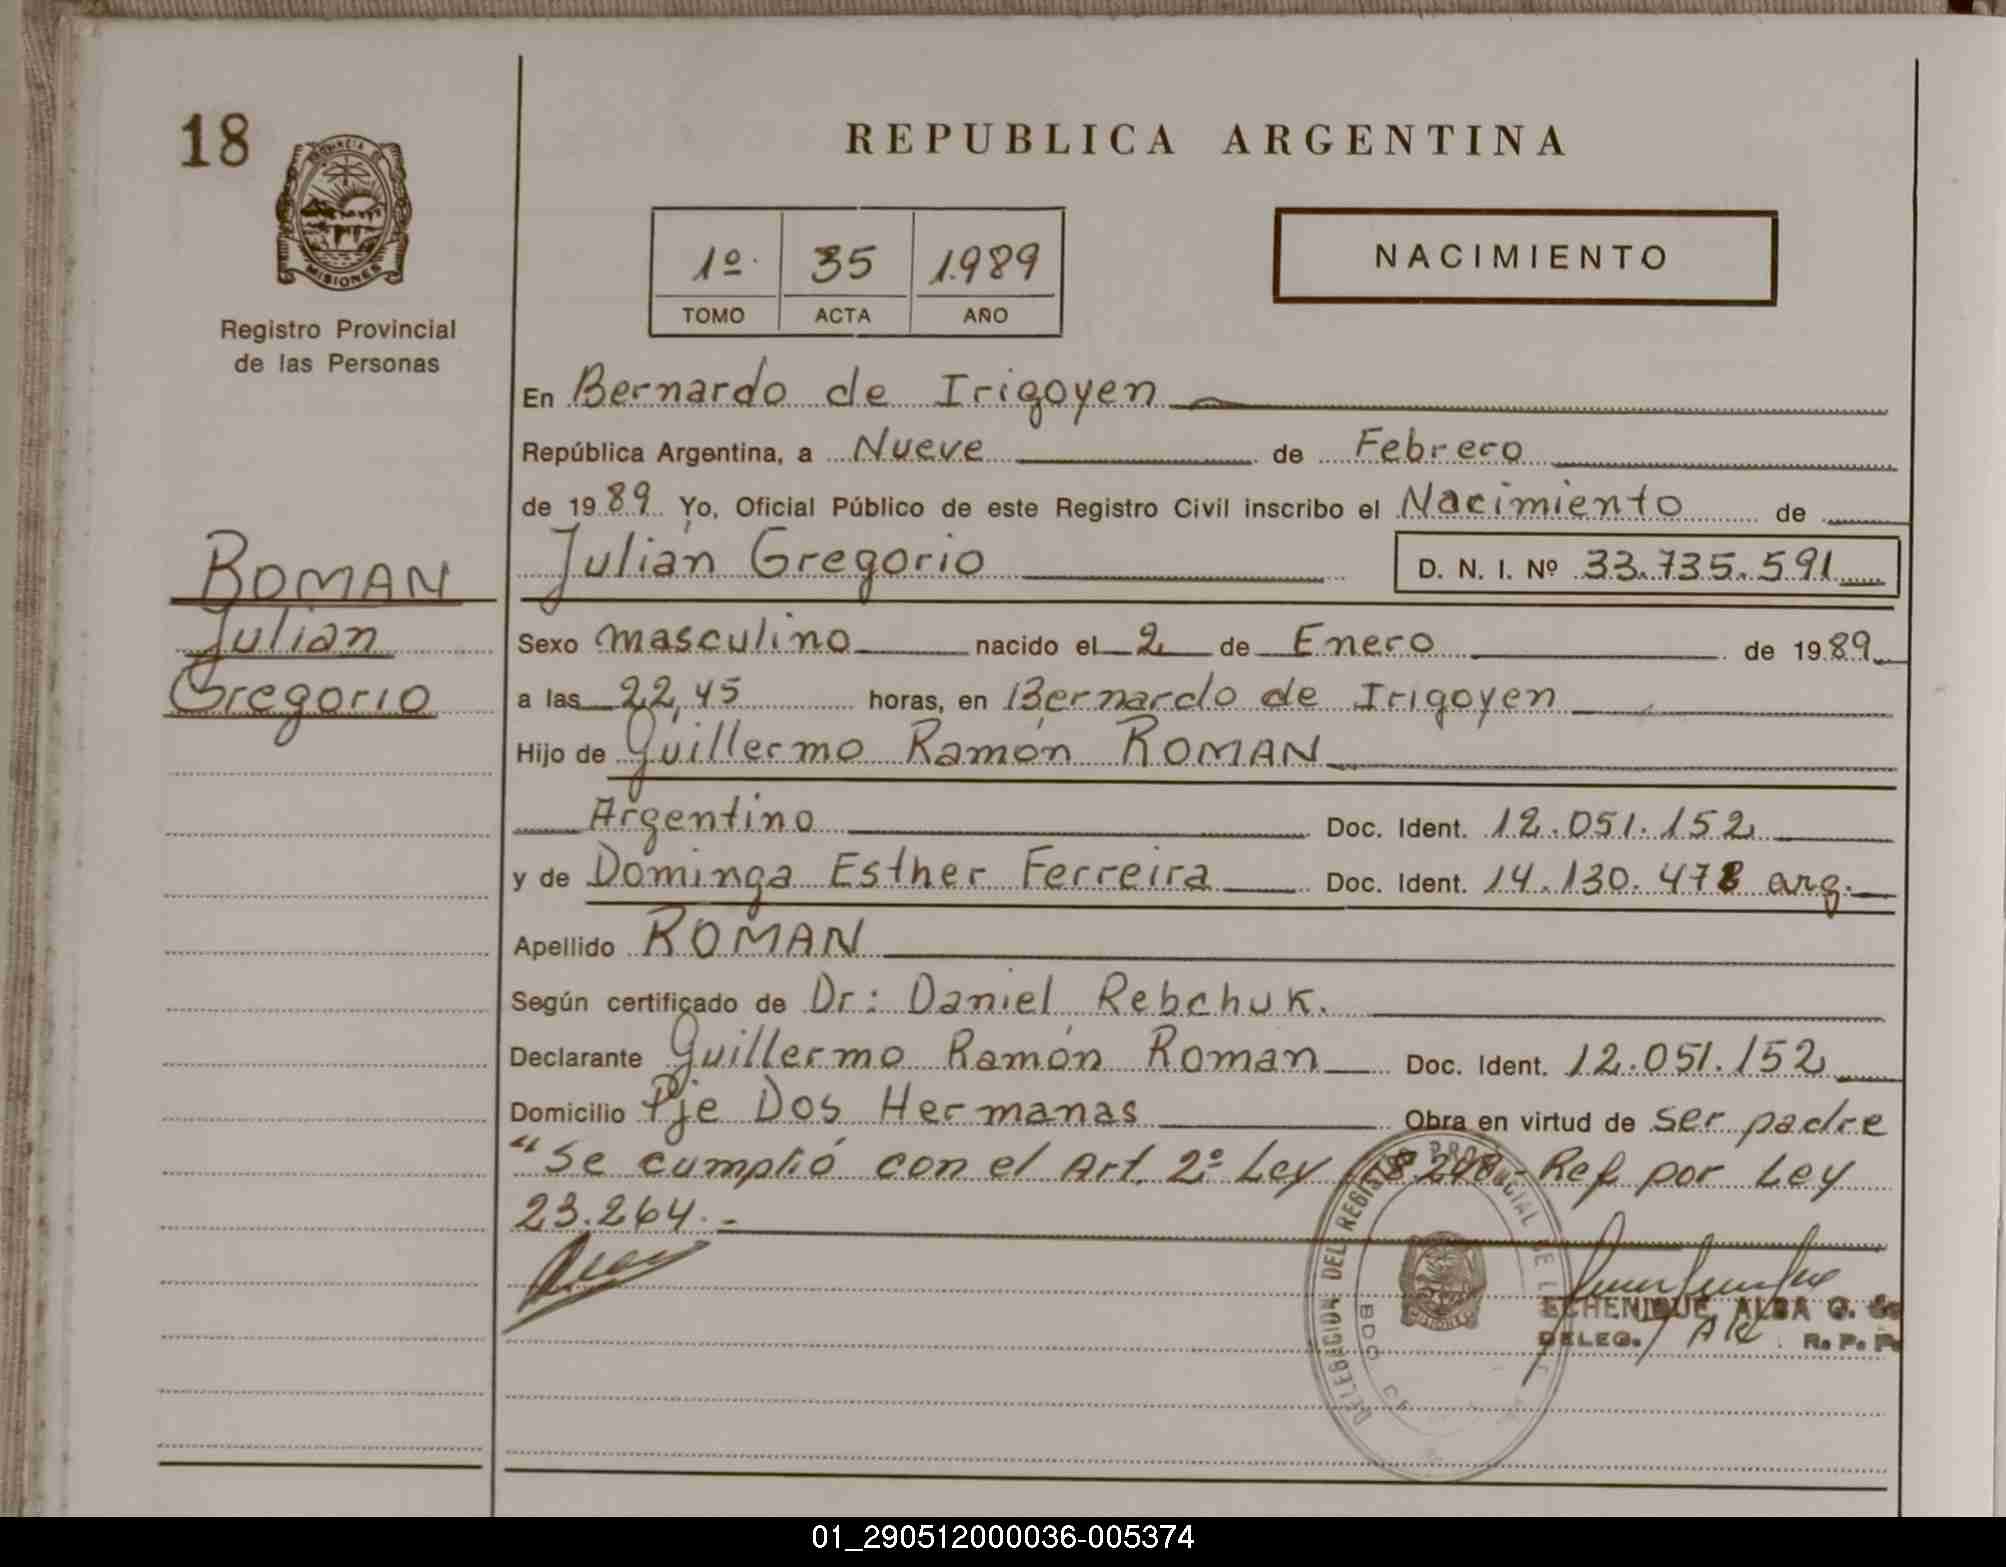 18
PROVINCIA DE
MISIONES
Registro Provincial
de las Personas
REPUBLICA ARGENTINA
1º 35 1.989
TOMO ACTA AÑO
NACIMIENTO
ROMAN
Julián
Gregorio
En Bernardo de Irigoyen
República Argentina, a Nueve de Febrero
de 1989 Yo, Oficial Público de este Registro Civil inscribo el Nacimiento de
Julián Gregorio D. N. I. Nº 33.735.591
Sexo masculino nacido el 2 de Enero de 1989
a las 22,45 horas, en Bernardo de Irigoyen
Hijo de Guillermo Ramón ROMAN
Argentino Doc. Ident. 12.051.152
y de Dominga Esther Ferreira Doc. Ident. 14.130.478 arg.
Apellido ROMAN
Según certificado de Dr: Daniel Rebchuk.
Declarante Guillermo Ramón Roman Doc. Ident. 12.051.152
Domicilio Pje Dos Hermanas Obra en virtud de ser padre
"Se cumplió con el Art. 2º Ley 18.248 - Ref por Ley
23.264.-
DELEGACION DEL REGISTRO PROVINCIAL DE L
BDO
MISIONES
ECHENIQUE, ALBA Q. de
DELEG. R. P. P.
01_290512000036-005374